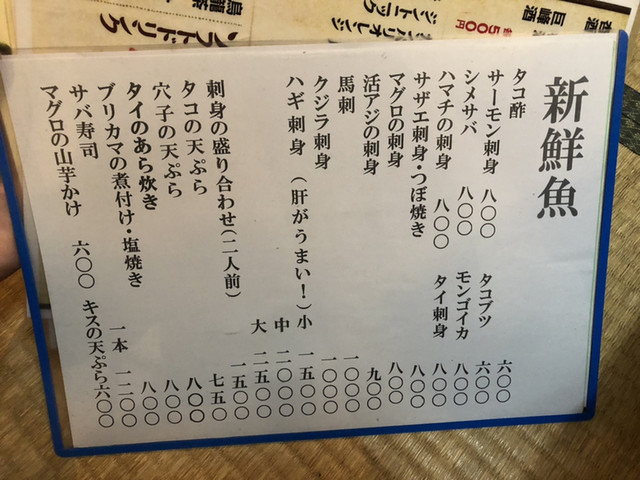 新鮮魚
タコ酢 六〇〇
サーモン刺身 八〇〇 タコブツ 六〇〇
シメサバ 八〇〇 モンゴイカ 八〇〇
ハマチの刺身 八〇〇 タイ刺身 八〇〇
サザエ刺身・つぼ焼き 八〇〇
マグロの刺身 八〇〇
活アジの刺身 九〇〇
馬刺 一〇〇〇
クジラ刺身 一〇〇〇
ハギ刺身（肝がうまい！）小 一五〇〇
中 二〇〇〇
大 二五〇〇
刺身の盛り合わせ（二人前） 一五〇〇
タコの天ぷら 七五〇
穴子の天ぷら 八〇〇
タイのあら炊き 八〇〇
ブリカマの煮付け・塩焼き 八〇〇
サバ寿司 一本 一二〇〇
マグロの山芋かけ 六〇〇 キスの天ぷら六〇〇
巨峰酒
500円
ジントニック
ソフトドリンク
烏龍茶